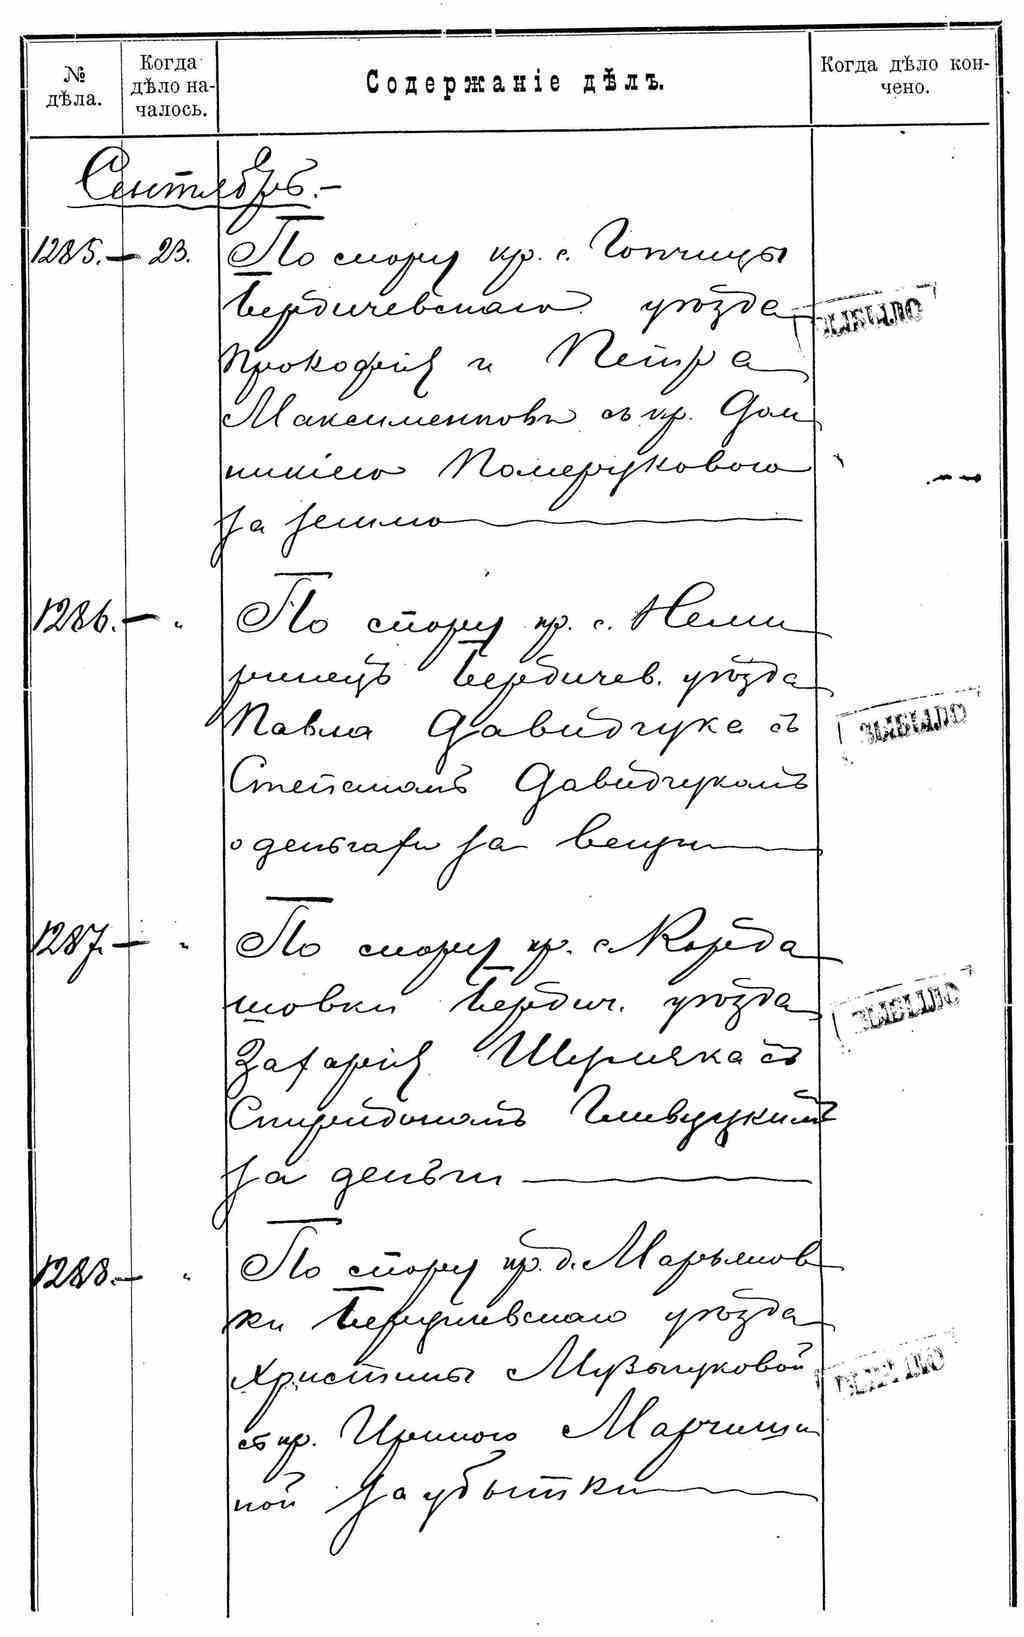 № дѣла.
Когда дѣло на-чалось.
Содержаніе дѣлъ.
Когда дѣло кон-чено.
Сентябрь.-
1285. — 23. По спору кр. с. Гопчицы
Бердичевскаго уѣзда
Прокофія и Петра
Максименковъ съ кр. Дом
никіею Померуковою
за землю
1286. — " По спору кр. с. Неми
ринецъ Бердичев. уѣзда
Павла Давидчука съ
Степаномъ Давидчукомъ
о деньгахъ за вещи
1287. — " По спору кр. с. Корда
шовки Бердич. уѣзда
Захарія Шермяка съ
Спиридономъ
за деньги
1288. — " По спору кр. д. Марьянов
ки Бердичевскаго уѣзда
Христины Музычуковой
съ кр. Ириною Марчиши
ной за убытки
ВЫБЫЛО
ВЫБЫЛО
ВЫБЫЛО
ВЫБЫЛО